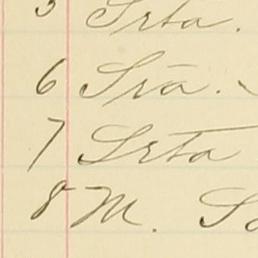 5 Srta.
6 Sra.
7 Srta
8 M. S